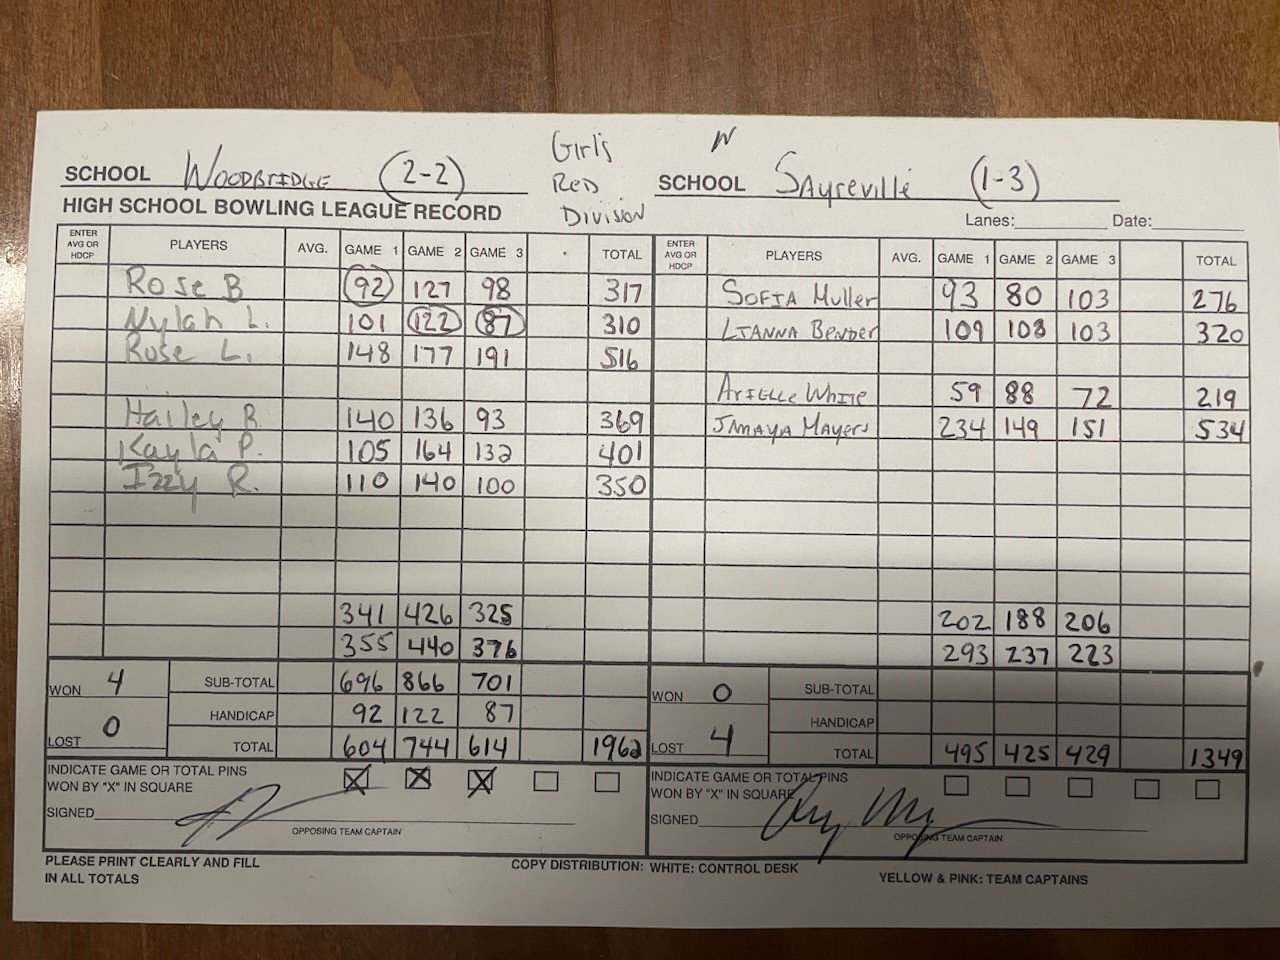 Girl's
Red
Division
N
SCHOOL WOODBRIDGE (2-2)
SCHOOL SAyreville (1-3)
HIGH SCHOOL BOWLING LEAGUE RECORD
Lanes: Date:
ENTER AVG OR HDCP PLAYERS AVG. GAME 1 GAME 2 GAME 3 TOTAL ENTER AVG OR HDCP PLAYERS AVG. GAME 1 GAME 2 GAME 3 TOTAL
Rose B 92 127 98 317 SOFIA Muller 93 80 103 276
Nylah L. 101 122 87 310 LIANNA Bender 109 108 103 320
Rose L. 148 177 191 516
ArIELLE White 59 88 72 219
Hailey R. 140 136 93 369 JAMAYA Mayers 234 149 151 534
Kayla P. 105 164 132 401
Izzy R. 110 140 100 350
341 426 325 202 188 206
355 440 376 293 237 223
WON 4 SUB-TOTAL 696 866 701 WON 0 SUB-TOTAL
HANDICAP 92 122 87 HANDICAP
LOST 0 TOTAL 604 744 614 1962 LOST 4 TOTAL 495 425 429 1349
INDICATE GAME OR TOTAL PINS
WON BY "X" IN SQUARE
SIGNED
OPPOSING TEAM CAPTAIN
INDICATE GAME OR TOTAL PINS
WON BY "X" IN SQUARE
SIGNED
OPPOSING TEAM CAPTAIN
PLEASE PRINT CLEARLY AND FILL
IN ALL TOTALS
COPY DISTRIBUTION: WHITE: CONTROL DESK
YELLOW & PINK: TEAM CAPTAINS